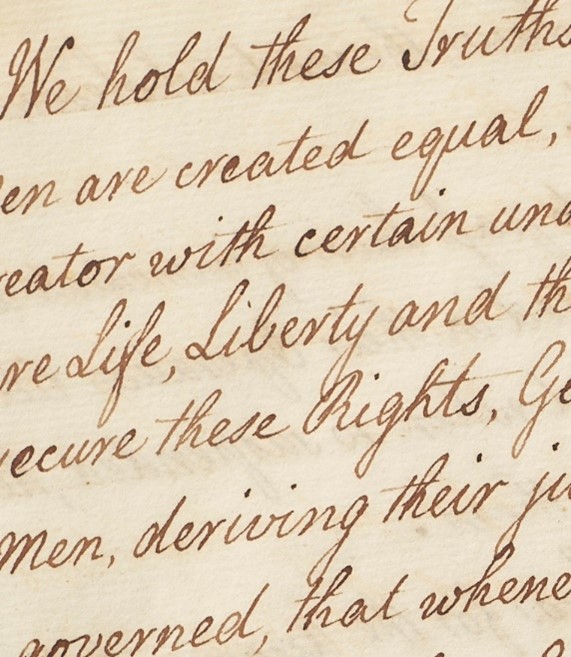 We hold these Truths
en are created equal,
reator with certain una
re Life, Liberty and th
ecure these Rights, Go
Men, deriving their ju
governed, that whene